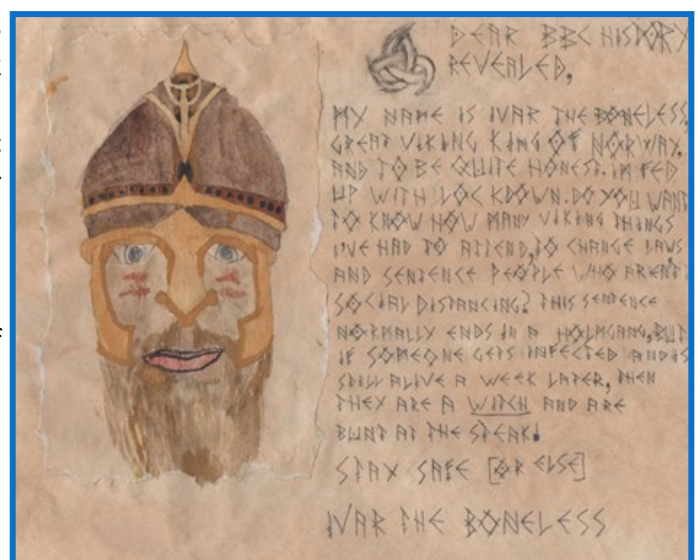 DEAR BBC HISTORY
REVEALED,
MY NAME IS IVAR THE BONELESS,
GREAT VIKING KING OF NORWAY.
AND TO BE QUITE HONEST. I'M FED
UP WITH LOCKDOWN. DO YOU WANT
TO KNOW HOW MANY VIKING THINGS
I'VE HAD TO ATTEND, TO CHANGE LAWS
AND SENTENCE PEOPLE WHO AREN'T
SOCIAL DISTANCING? THIS SENTENCE
NORMALLY ENDS IN A HOLMGANG, BUT
IF SOMEONE GETS INFECTED AND IS
STILL ALIVE A WEEK LATER, THEN
THEY ARE A WITCH AND ARE
BUNT AT THE STEAK!
STAY SAFE [OR ELSE]
IVAR THE BONELESS